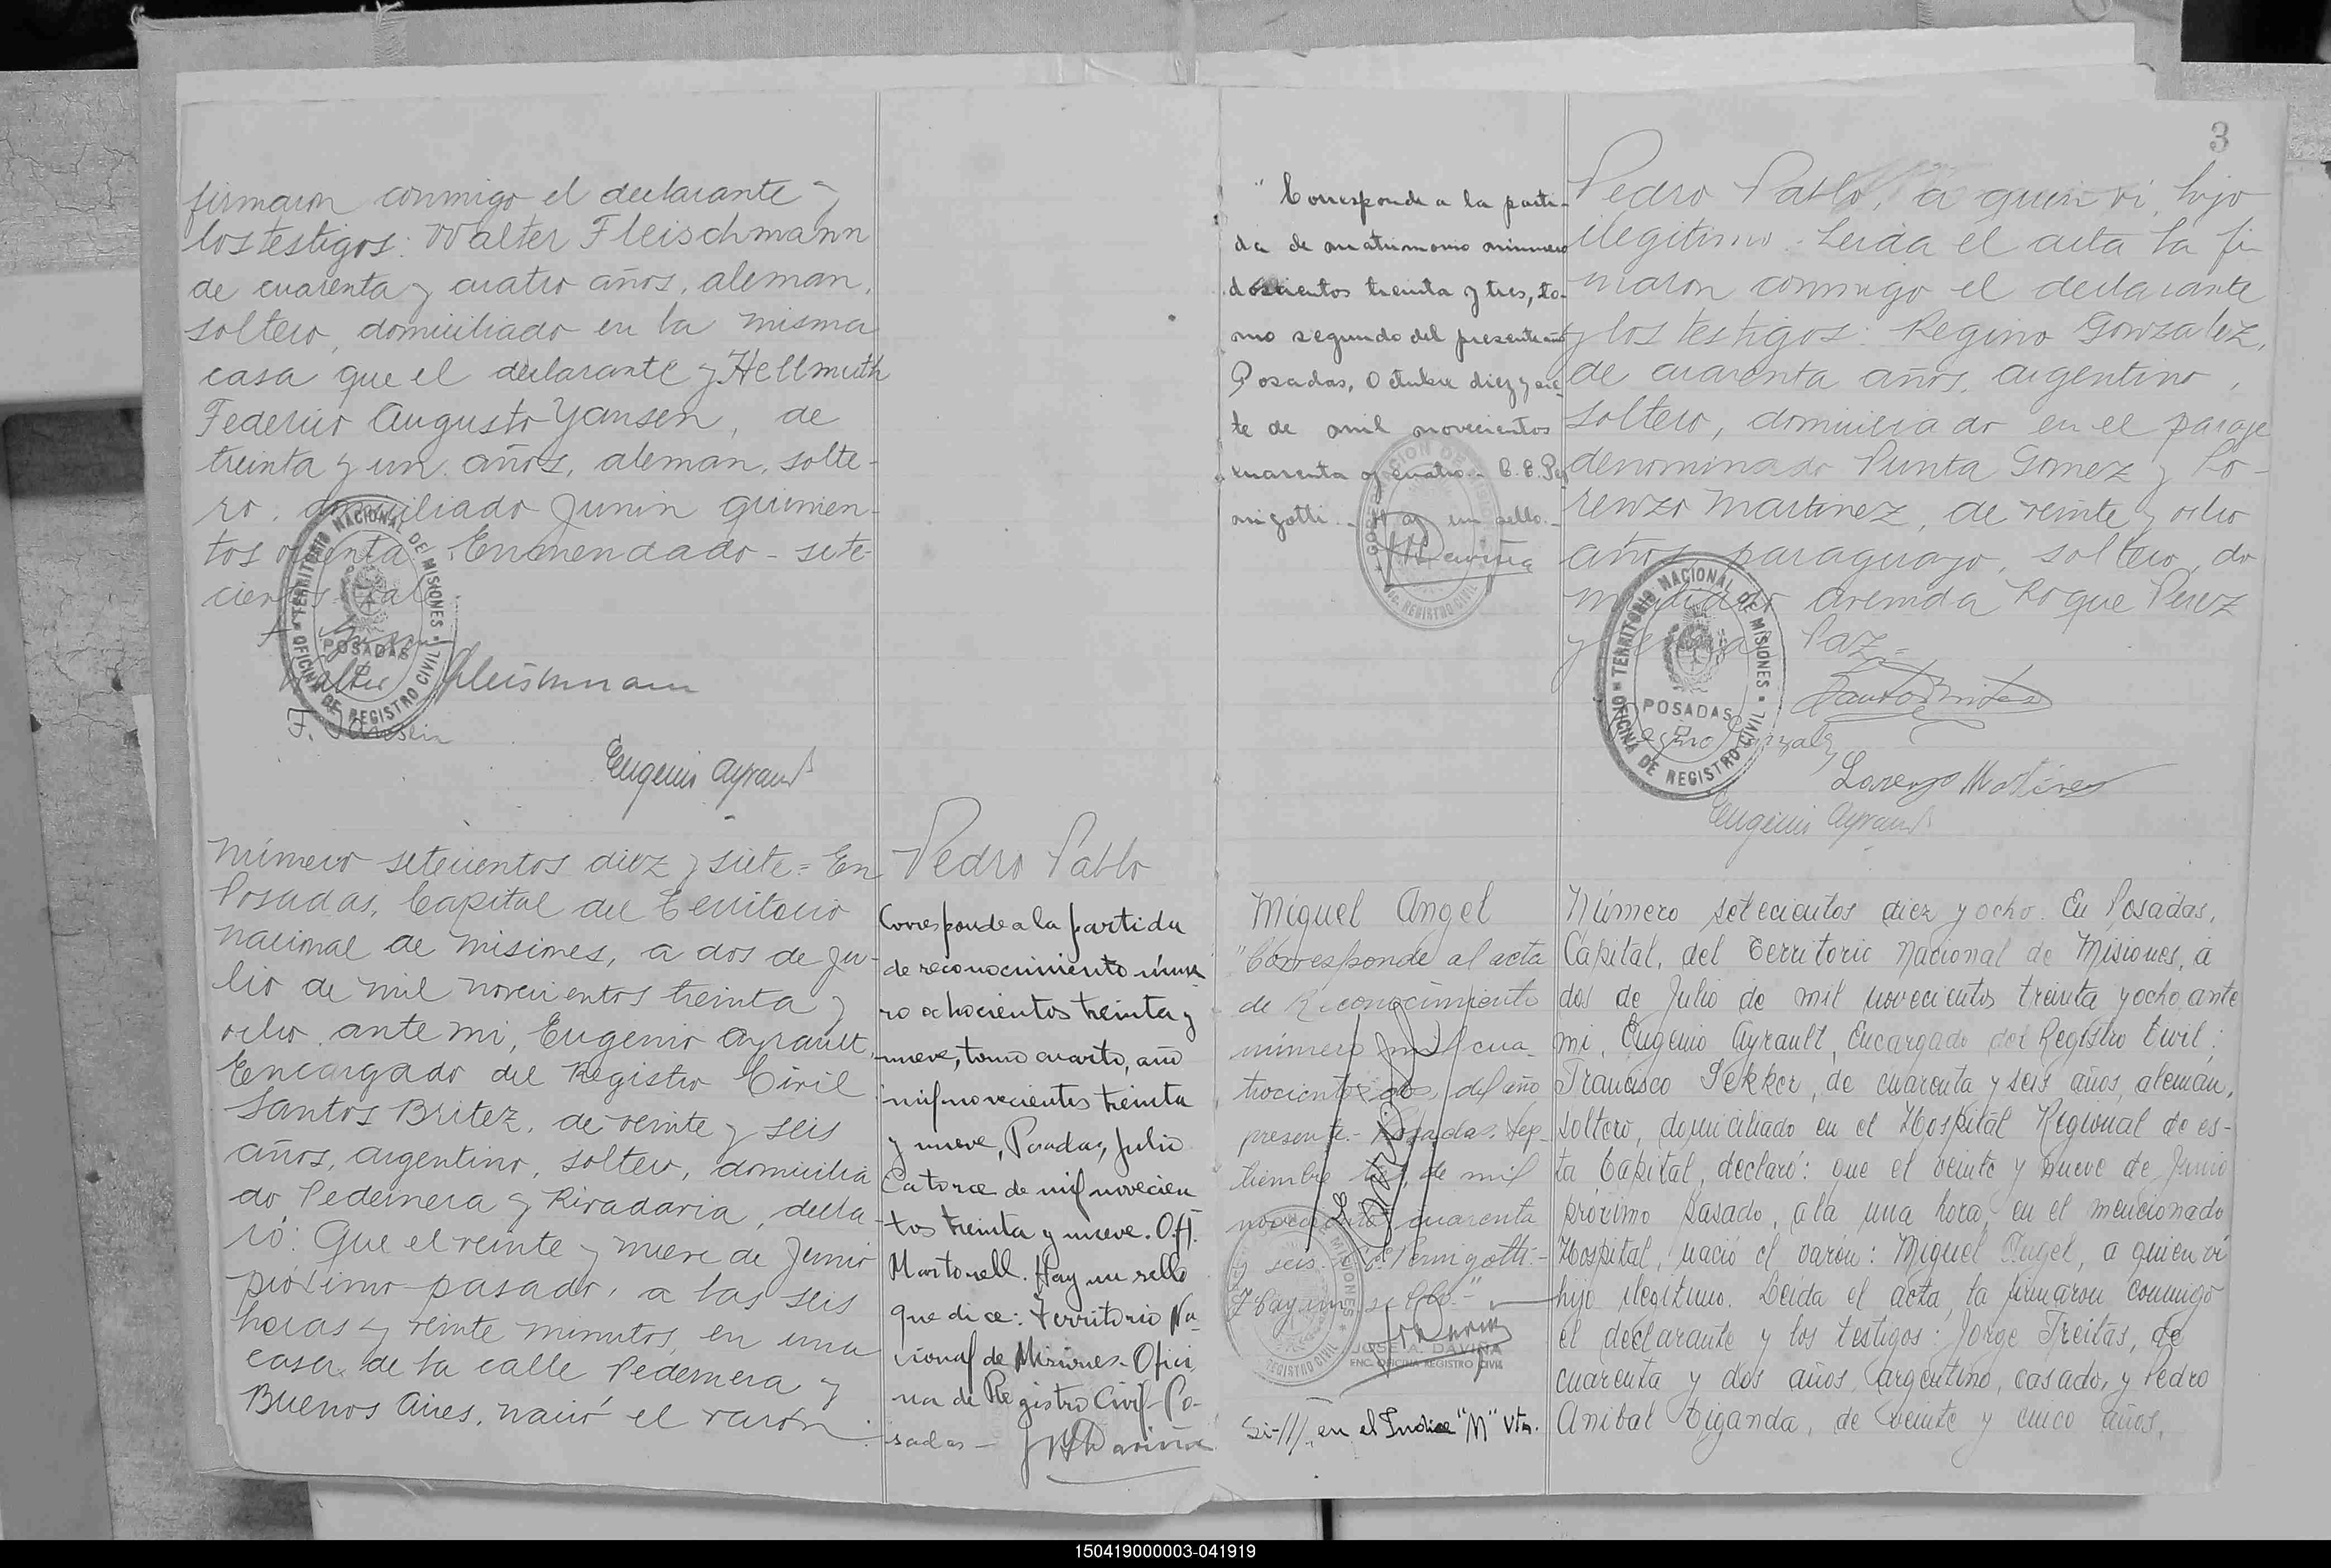 firmaron conmigo el declarante y
los testigos: Walter Fleischmann
de cuarenta y cuatro años, aleman,
soltero, domiciliado en la misma
casa que el declarante y Hellmuth
Federico Augusto Yansen, de
treinta y un años, aleman, solte-
ro, domiciliado Junin quinien-
tos ochenta. Enmendado - sete-
cientos - Vale
Walter Fleischmann
F. Jansen
Eugenio Ayrault
TERRITORIO NACIONAL DE MISIONES
POSADAS
OFICINA DE REGISTRO CIVIL
Número setecientos diez y siete = En
Posadas, Capital del Territorio
nacional de Misiones, a dos de Ju-
lio de mil novecientos treinta y
ocho, ante mi, Eugenio Ayrault,
Encargado del Registro Civil
Santos Britez, de veinte y seis
años, argentino, soltero, domicilia
do Pedernera y Rivadavia, decla-
ró: Que el veinte y nueve de Junio
próximo pasado, a las seis
horas y veinte minutos, en una
casa de la calle Pedernera y
Buenos Aires, nació el varón
Pedro Pablo
Corresponde a la partida
de reconocimiento núme
ro ochocientos treinta y
nueve, tomo cuarto, año
mil novecientos treinta
y nueve, Posadas, Julio
Catorce de mil novecien
tos treinta y nueve. O.H.
Martorell. Hay un sello
que dice: Territorio Na-
cional de Misiones - Ofici
na de Registro Civil - Po-
sadas - J A Daviña
3
"Corresponde a la parti-
da de matrimonio número
doscientos treinta y tres, to-
mo segundo del presente año
Posadas, Octubre diez y sie-
te de mil novecientos
cuarenta y cuatro. - C. E. Pe
nigotti. - Hay un sello. -
Daviña
REGISTRO CIVIL
Pedro Pablo, a quien vi, hijo
ilegitimo. Leida el acta la fir
maron conmigo el declarante
y los testigos: Regino Gonzalez,
de cuarenta años, argentino,
soltero, domiciliado en el paraje
denominado Punta Gomez y Lo-
renzo Martinez, de veinte y ocho
años, paraguayo, soltero, do
miciliado avenida Roque Perez
y Paz =
Santos Britez
Regino Gonzalez
Lorenzo Martinez
Eugenio Ayrault
TERRITORIO NACIONAL DE MISIONES
POSADAS
OFICINA DE REGISTRO CIVIL
Miguel Angel
"Corresponde al acta
de Reconocimiento
número mil cua-
trocientos dos, del año
presente. - Posadas, Sep-
tiembre tres de mil
novecientos cuarenta
y seis. Penigotti. -
Hay un sello. - "
JOSE A. DAVIÑA
ENC. OFICINA REGISTRO CIVIL
REGISTRO CIVIL
Si-///, en el Indice "M" Vta.
Número setecientos diez y ocho. En Posadas,
Capital, del Territorio Nacional de Misiones, a
dos de Julio de mil novecientos treinta y ocho ante
mi, Eugenio Ayrault, Encargado del Registro Civil;
Francisco Sekker, de cuarenta y seis años, alemán,
soltero, domiciliado en el Hospital Regional de es-
ta Capital, declaró: que el veinte y nueve de Junio
próximo pasado, a la una hora, en el mencionado
Hospital, nació el varón: Miguel Angel, a quien vi
hijo ilegitimo. Leida el acta, la firmaron conmigo
el declarante y los testigos: Jorge Freitas, de
cuarenta y dos años, argentino, casado, y Pedro
Anibal Giganda, de veinte y cinco años,
150419000003-041919